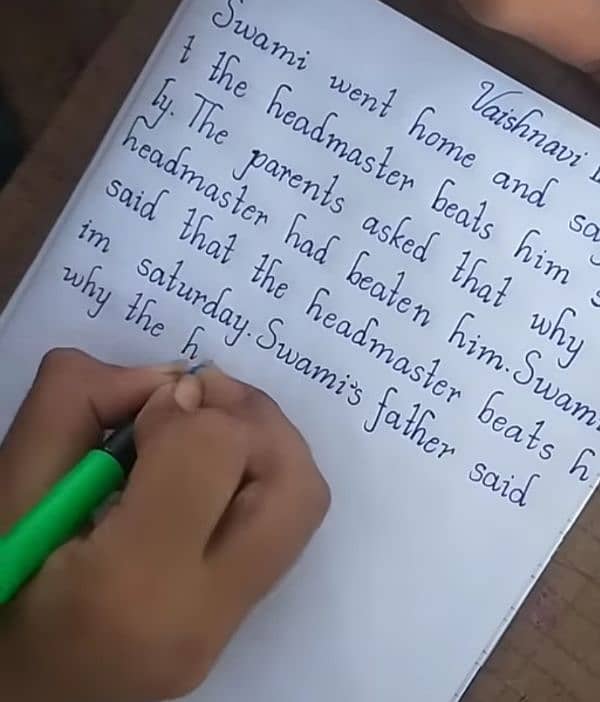 Vaishnavi
Swami went home and say
t the headmaster beats him s
ly. The parents asked that why
headmaster had beaten him. Swami
said that the headmaster beats h
im saturday. Swami's father said
why the h